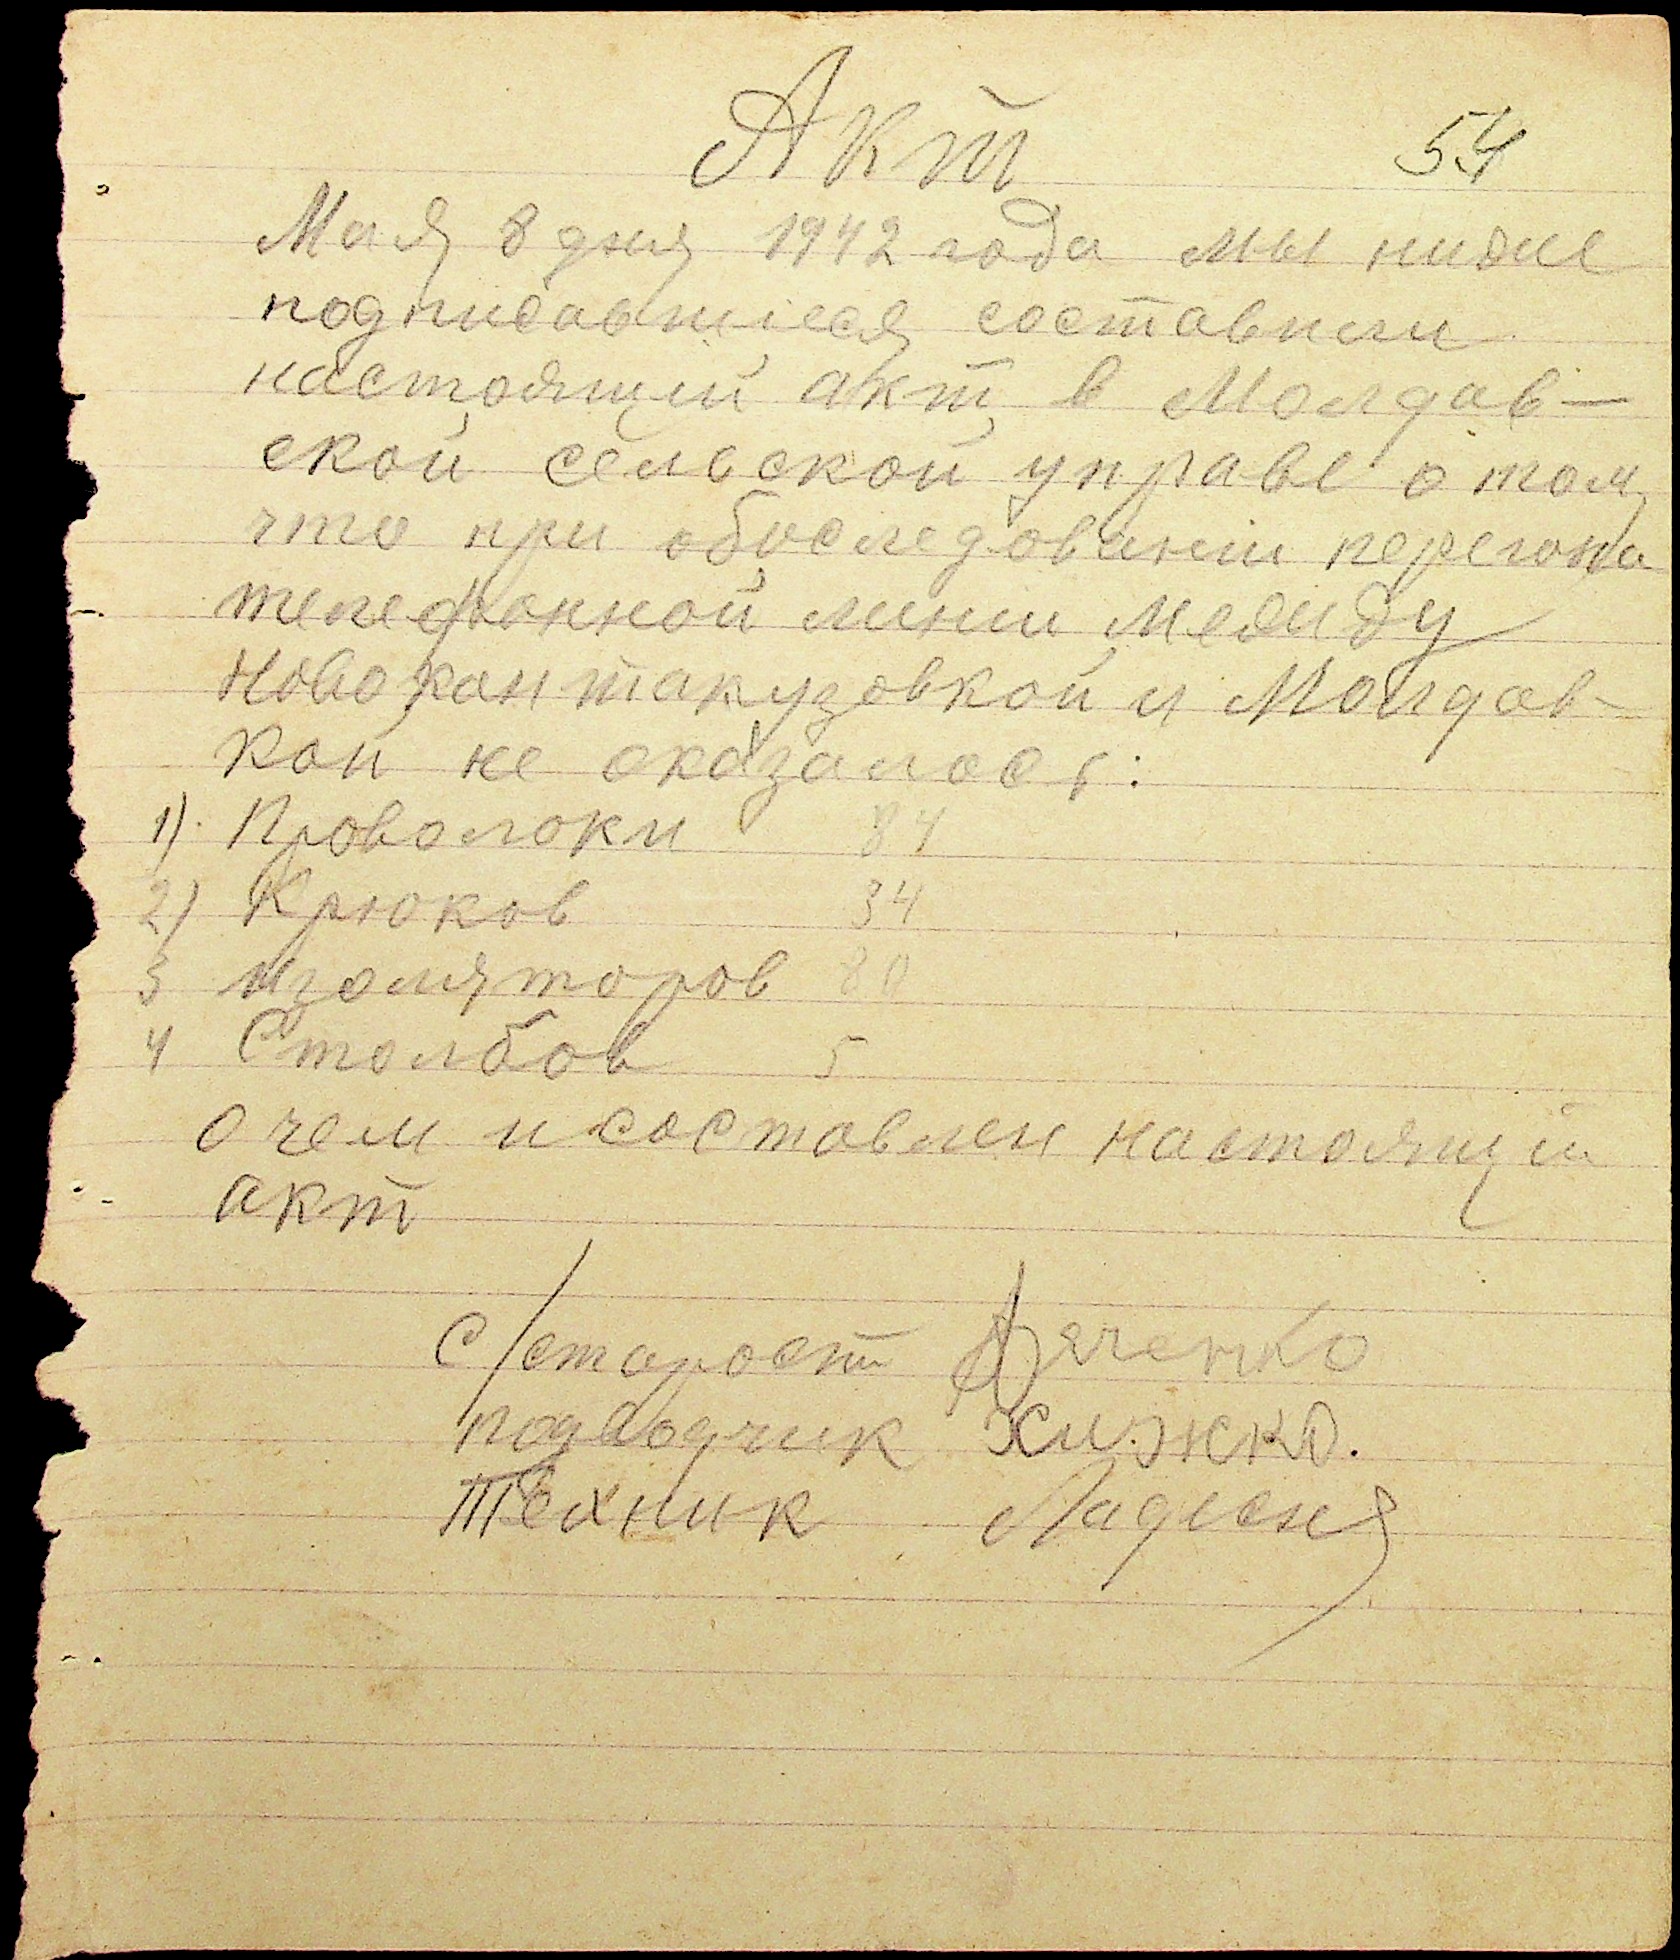 Акт
54
Мая 8 дня 1942 года мы ниже
подписавшиеся составили
настоящий акт в Молдав-
ской сельской управе о том,
что при обследовании перегона
телефонной линии между
Новокантакузовкой и Молдав-
кой не оказалось:
1). Проволоки 84
2) Крюков 34
3 изоляторов 80
4 Столбов 5
о чем и составлен настоящий
акт
с/старост Дяченко
подводчик Хижко.
Техник